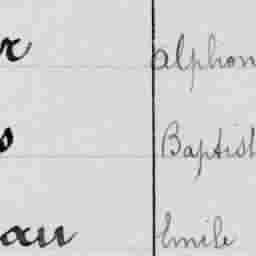 r alphon
s Baptist
au Emile